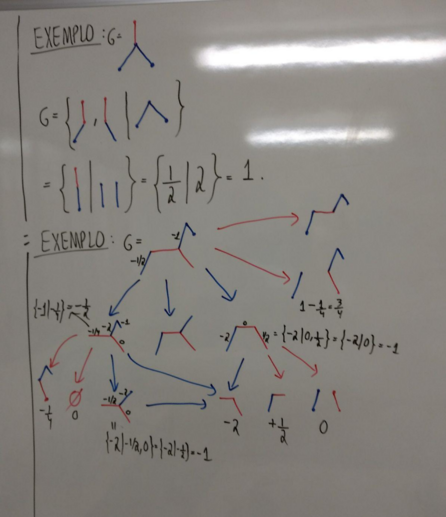 EXEMPLO: G=
G={ , | }
={ | }={1/2|2}=1.
= EXEMPLO: G=
-1
-1/2
{-1|-1/4}=-1/2
1-1/4=3/4
-1/4 -2 -1
0
-2 0 1/2 ={-2|0,1/2}={-2|0}=-1
-1/4
0
-1/2 -2
0
-2
+1/2
0
"
{-2|-1/2,0}={-2|-1/2}=-1